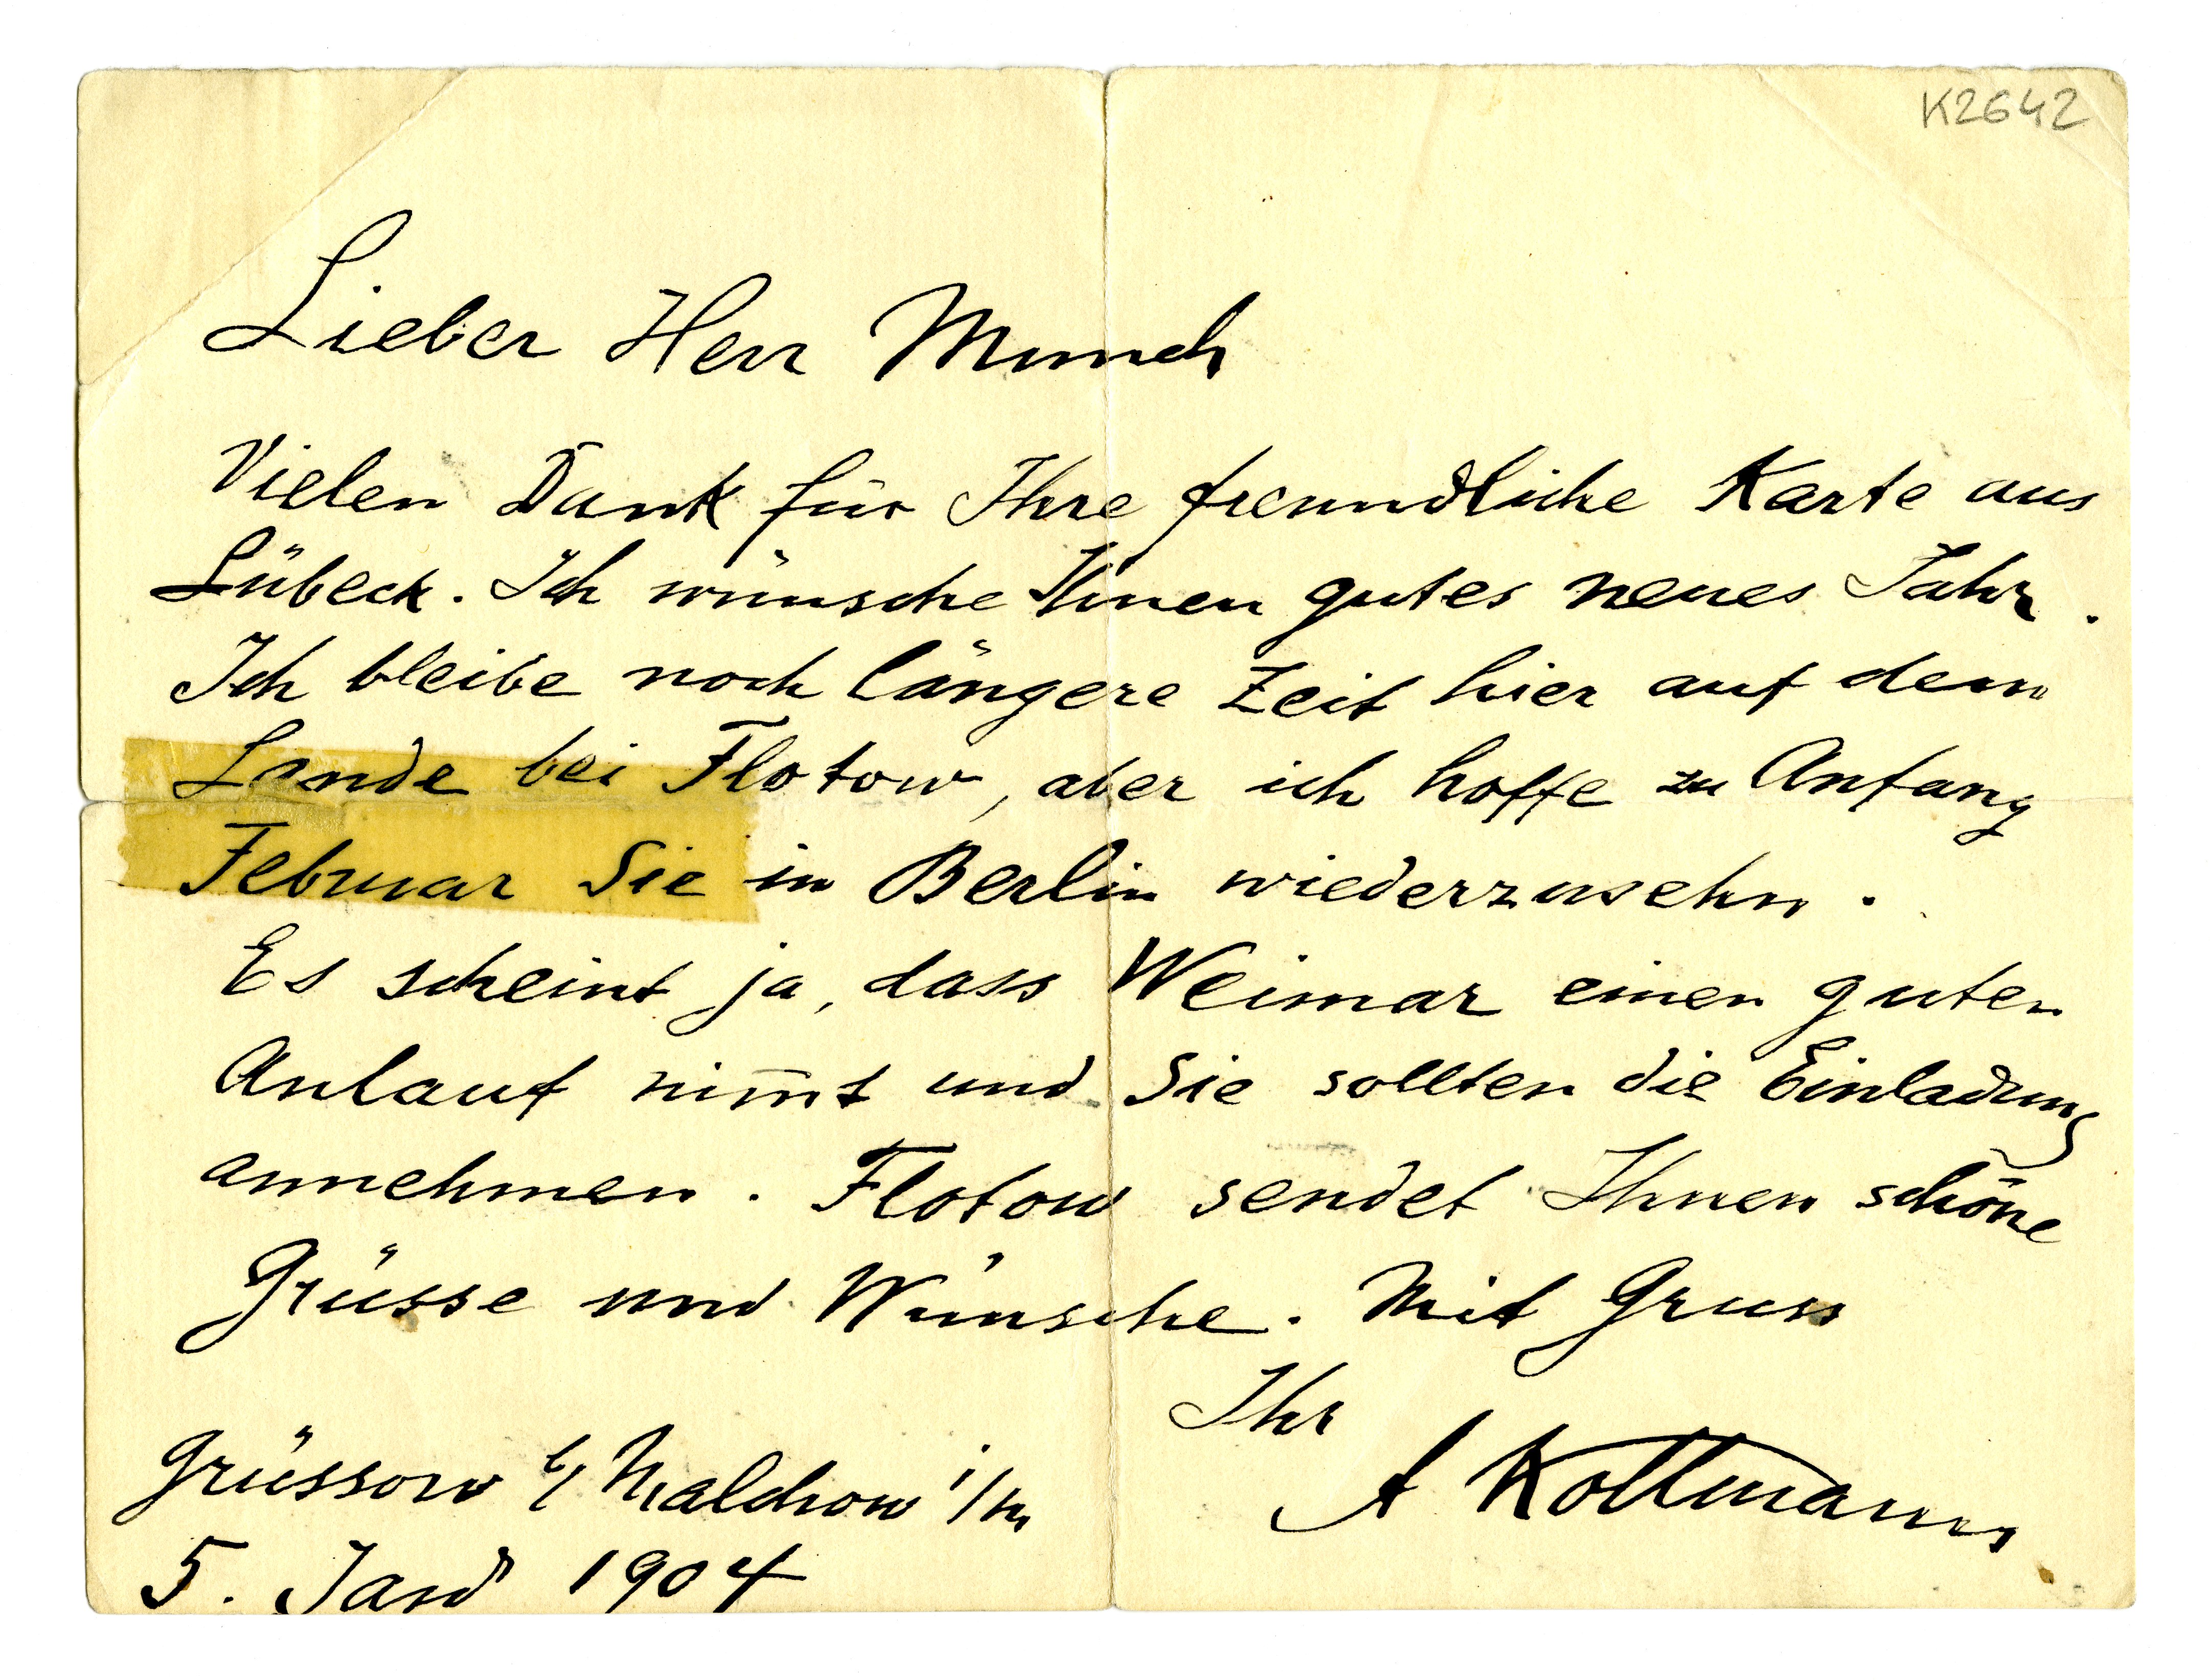 K2642
Lieber Herr Munch
Vielen Dank für Ihre freundliche Karte aus
Lübeck. Ich wünsche Ihnen gutes neues Jahr.
Ich bleibe noch längere Zeit hier auf dem
Lande bei Flotow, aber ich hoffe zu Anfang
Februar Sie in Berlin wiederzusehn.
Es scheint ja, dass Weimar einen guten
Anlauf nim̄t und Sie sollten die Einladung
annehmen. Flotow sendet Ihnen schöne
Grüsse und Wünsche. Mit Gruss
Ihr
A Kollmann
Grüssow b/ Malchow i/M
5. 1904